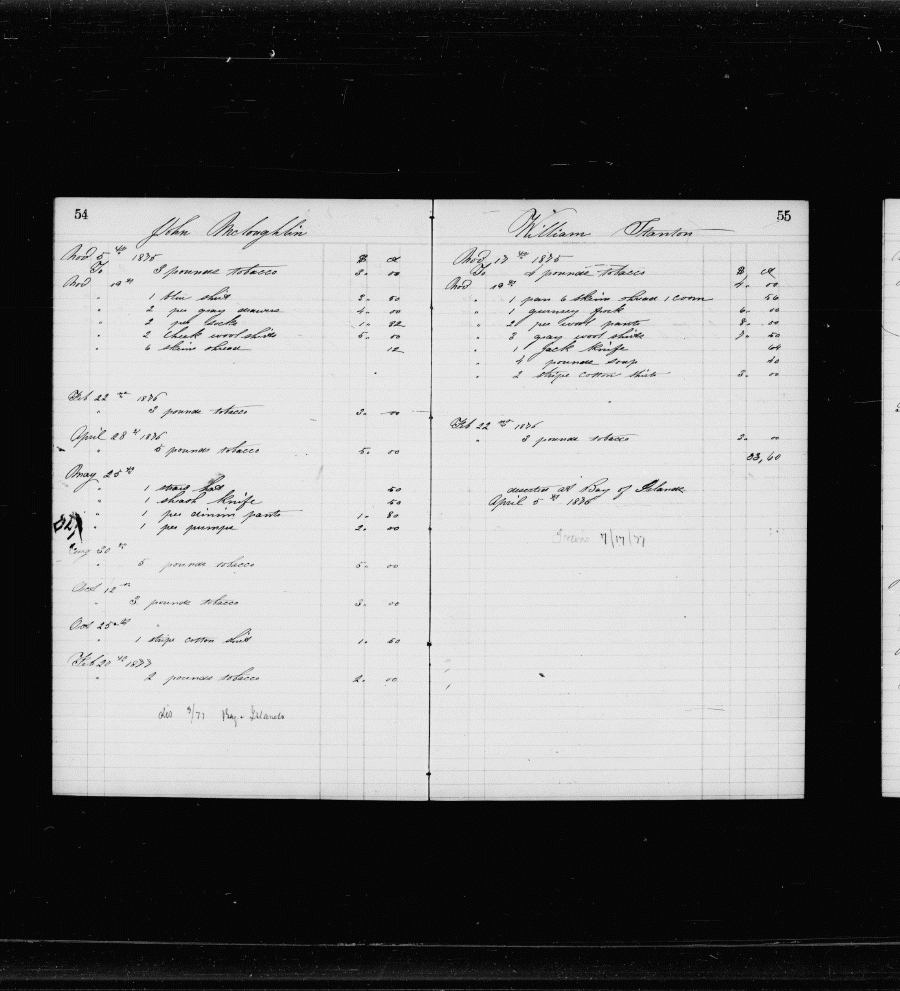 54
John Mcloughlin
Nov 5 th 1875 $ ct
To 3 pounds tobacco 3. 00
Nov 19 th
" 1 blue shirt 2. 50
" 2 per gray drawers 4. 00
" 2 per Socks 1. 32
" 2 Cheak wool shirts 5. 00
" 6 skeins thread 12
Feb 22 1876
" 3 pounds tobacco 3. 00
April 28 1876
" 5 pounds tobacco 5. 00
May 25 th
" 1 straw hat 50
" 1 sheath Knife 50
" 1 per dinim pants 1. 80
" 1 per pumps 2. 00
Aug 30 th
" 5 pounds tobacco 5. 00
Oct 12 th
" 3 pounds tobacco 3. 00
Oct 25 th
" 1 stripe cotton shirt 1. 50
Feb 20 th 1877
" 2 pounds tobacco 2. 00
dis 3/77 Bay Islands
55
William Stanton
Nov 17 th 1875
To 4 pounds tobacco $ ct
Nov 19 th 4. 00
" 1 pan 6 skeins thread 1 comb 56
" 1 gurnsey frok 6. 00
" 2 per wool pants 8. 00
" 3 gray wool shirts 7. 50
" 1 Jack Knife 64
" 4 pounds soap 40
" 2 stripe cotton shirts 3. 00
Feb 22 1876
" 3 pounds tobacco 3. 00
33,60
deserted at Bay of Islands
April 5 th 1876
7/17/77